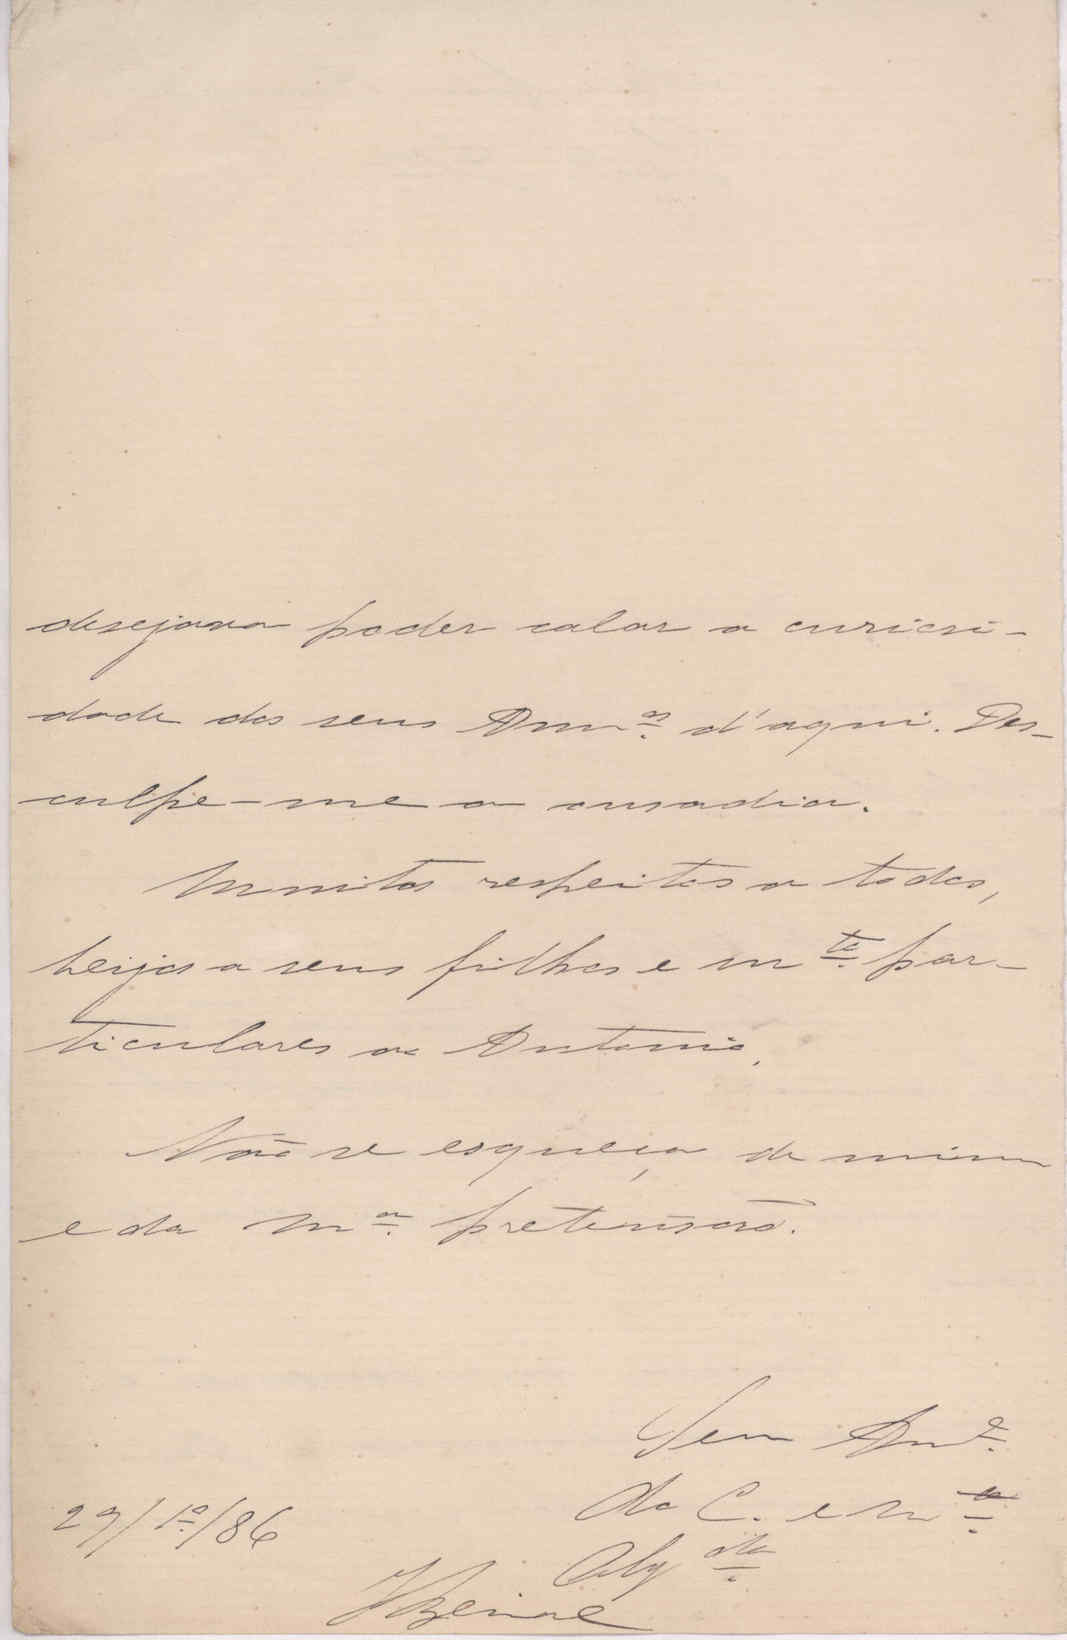 desejava poder calar a curiosi-
dade dos seus Am.os d'aqui. Des-
culpe-me a ousadia.
Muitos respeitos a todos,
beijos a seus filhos e m.to par-
ticulares ao Antonio.
Não se esqueça de mim
e da m.a pretensão.
Seu Am.o
do C. e
Obg.do
29/1º/86